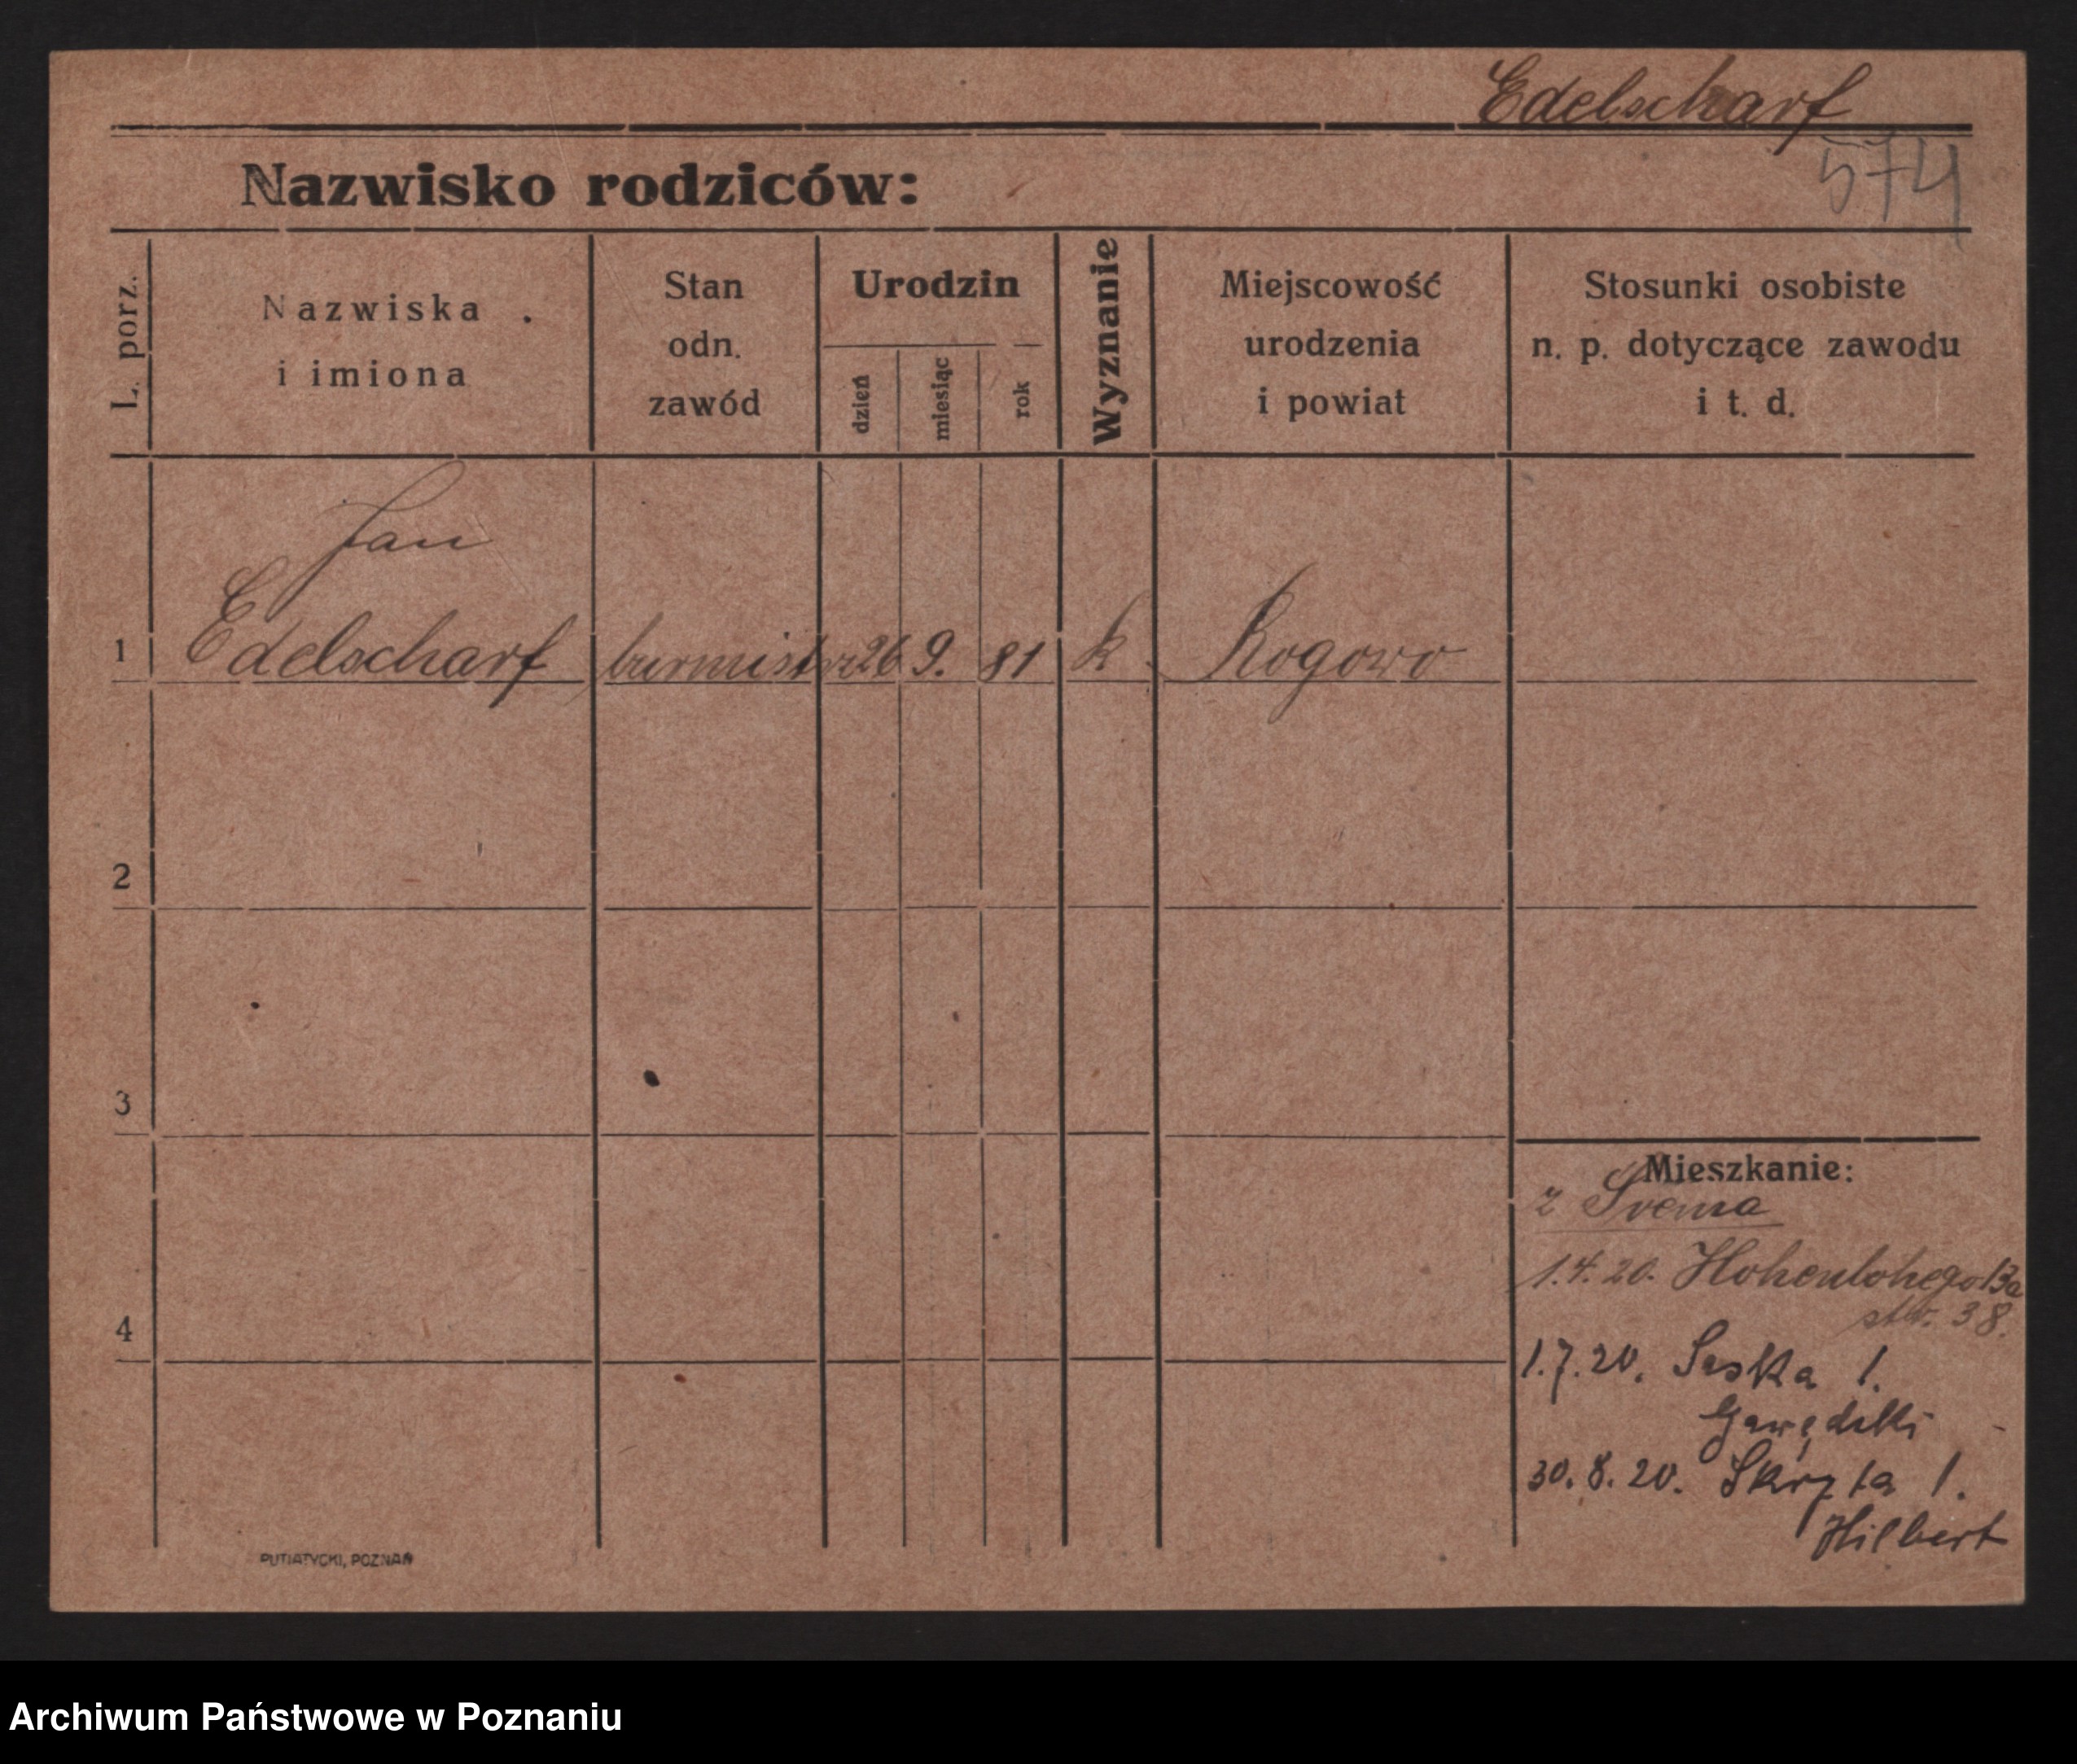 Edelscharf
574
Nazwisko rodziców:
L. porz.
Nazwiska
i imiona
Stan
odn.
zawód
Urodzin
dzień
miesiąc
rok
Wyznanie
Miejscowość
urodzenia
i powiat
Stosunki osobiste
n. p. dotyczące zawodu
i t. d.
Jan
1 Edelscharf burmistrz 26 9. 81 k. Rogowo
2
3
Mieszkanie:
z Śrema
1.4.20. Hohenlohego 13a
38.
4
1.7.20. Seska 1.
30.8.20. 1.
Hilbert
PUTIATYCKI, POZNAŃ
Archiwum Państwowe w Poznaniu